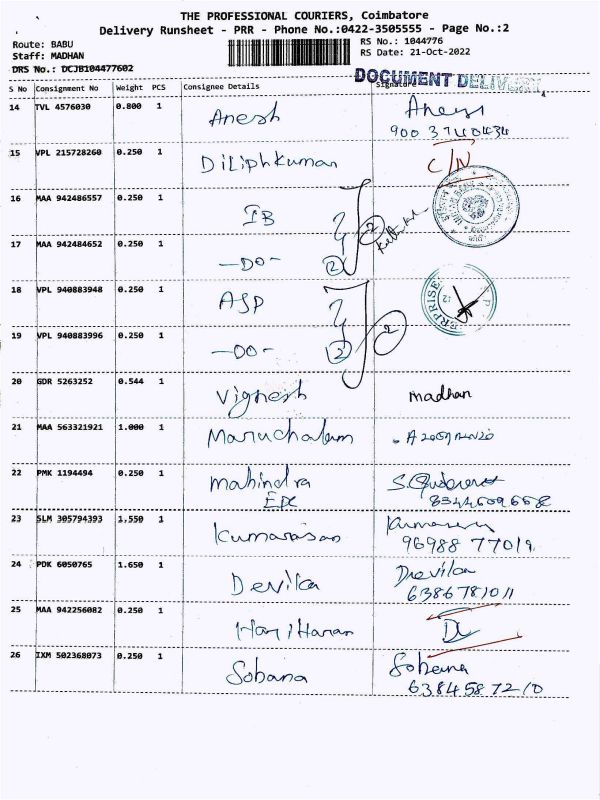 THE PROFESSIONAL COURIERS, Coimbatore
Delivery Runsheet - PRR - Phone No.:0422-3505555 - Page No.:2
Route: BABU
Staff: MADHAN
DRS No.: DCJB104477602
RS No.: 1044776
RS Date: 21-Oct-2022
DOCUMENT DELIVERY
S No Consignment No Weight PCS Consignee Details Signature
14 TVL 4576030 0.800 1 Anesh
15 VPL 215728260 0.250 1 Diliphkumar C/N
16 MAA 942486557 0.250 1 IB
17 MAA 942484652 0.250 1 -DO- 2 2
18 VPL 940883948 0.250 1 ASP
19 VPL 940883996 0.250 1 -DO- 2 2
20 GDR 5263252 0.544 1 Vignesh madhan
21 MAA 563321921 1.000 1 Maruchalam
22 PMK 1194494 0.250 1 Mahindra
23 SLM 305794393 1.550 1 Kumarasan
96988 77019
24 PDK 6050765 1.650 1 Devika Devika
6386781011
25 MAA 942256082 0.250 1 Hari Haran DL
26 IXM 502368073 0.250 1 Sobana Sobana
6384587210